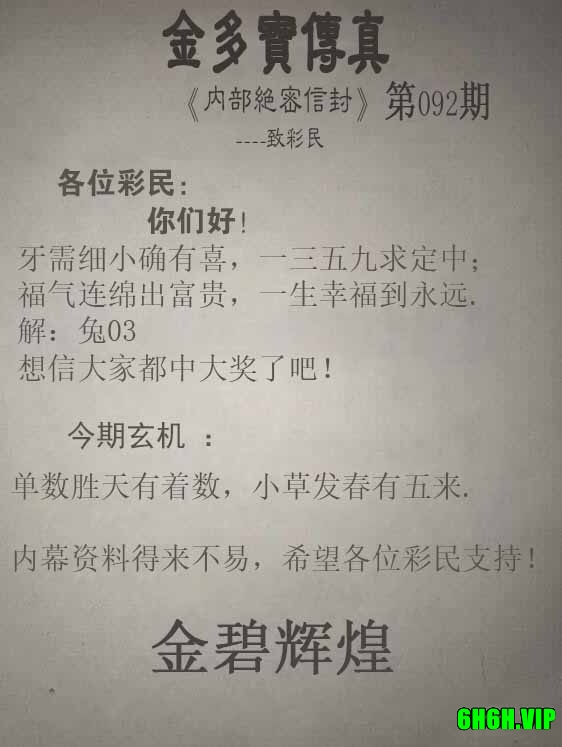 金多寳傳真
《内部絕密信封》第092期
----致彩民
各位彩民:
你们好!
牙需细小确有喜，一三五九求定中;
福气连绵出富贵，一生幸福到永远.
解：兔03
想信大家都中大奖了吧!
今期玄机 :
单数胜天有着数，小草发春有五来.
内幕资料得来不易，希望各位彩民支持!
金碧辉煌
6H6H.VIP